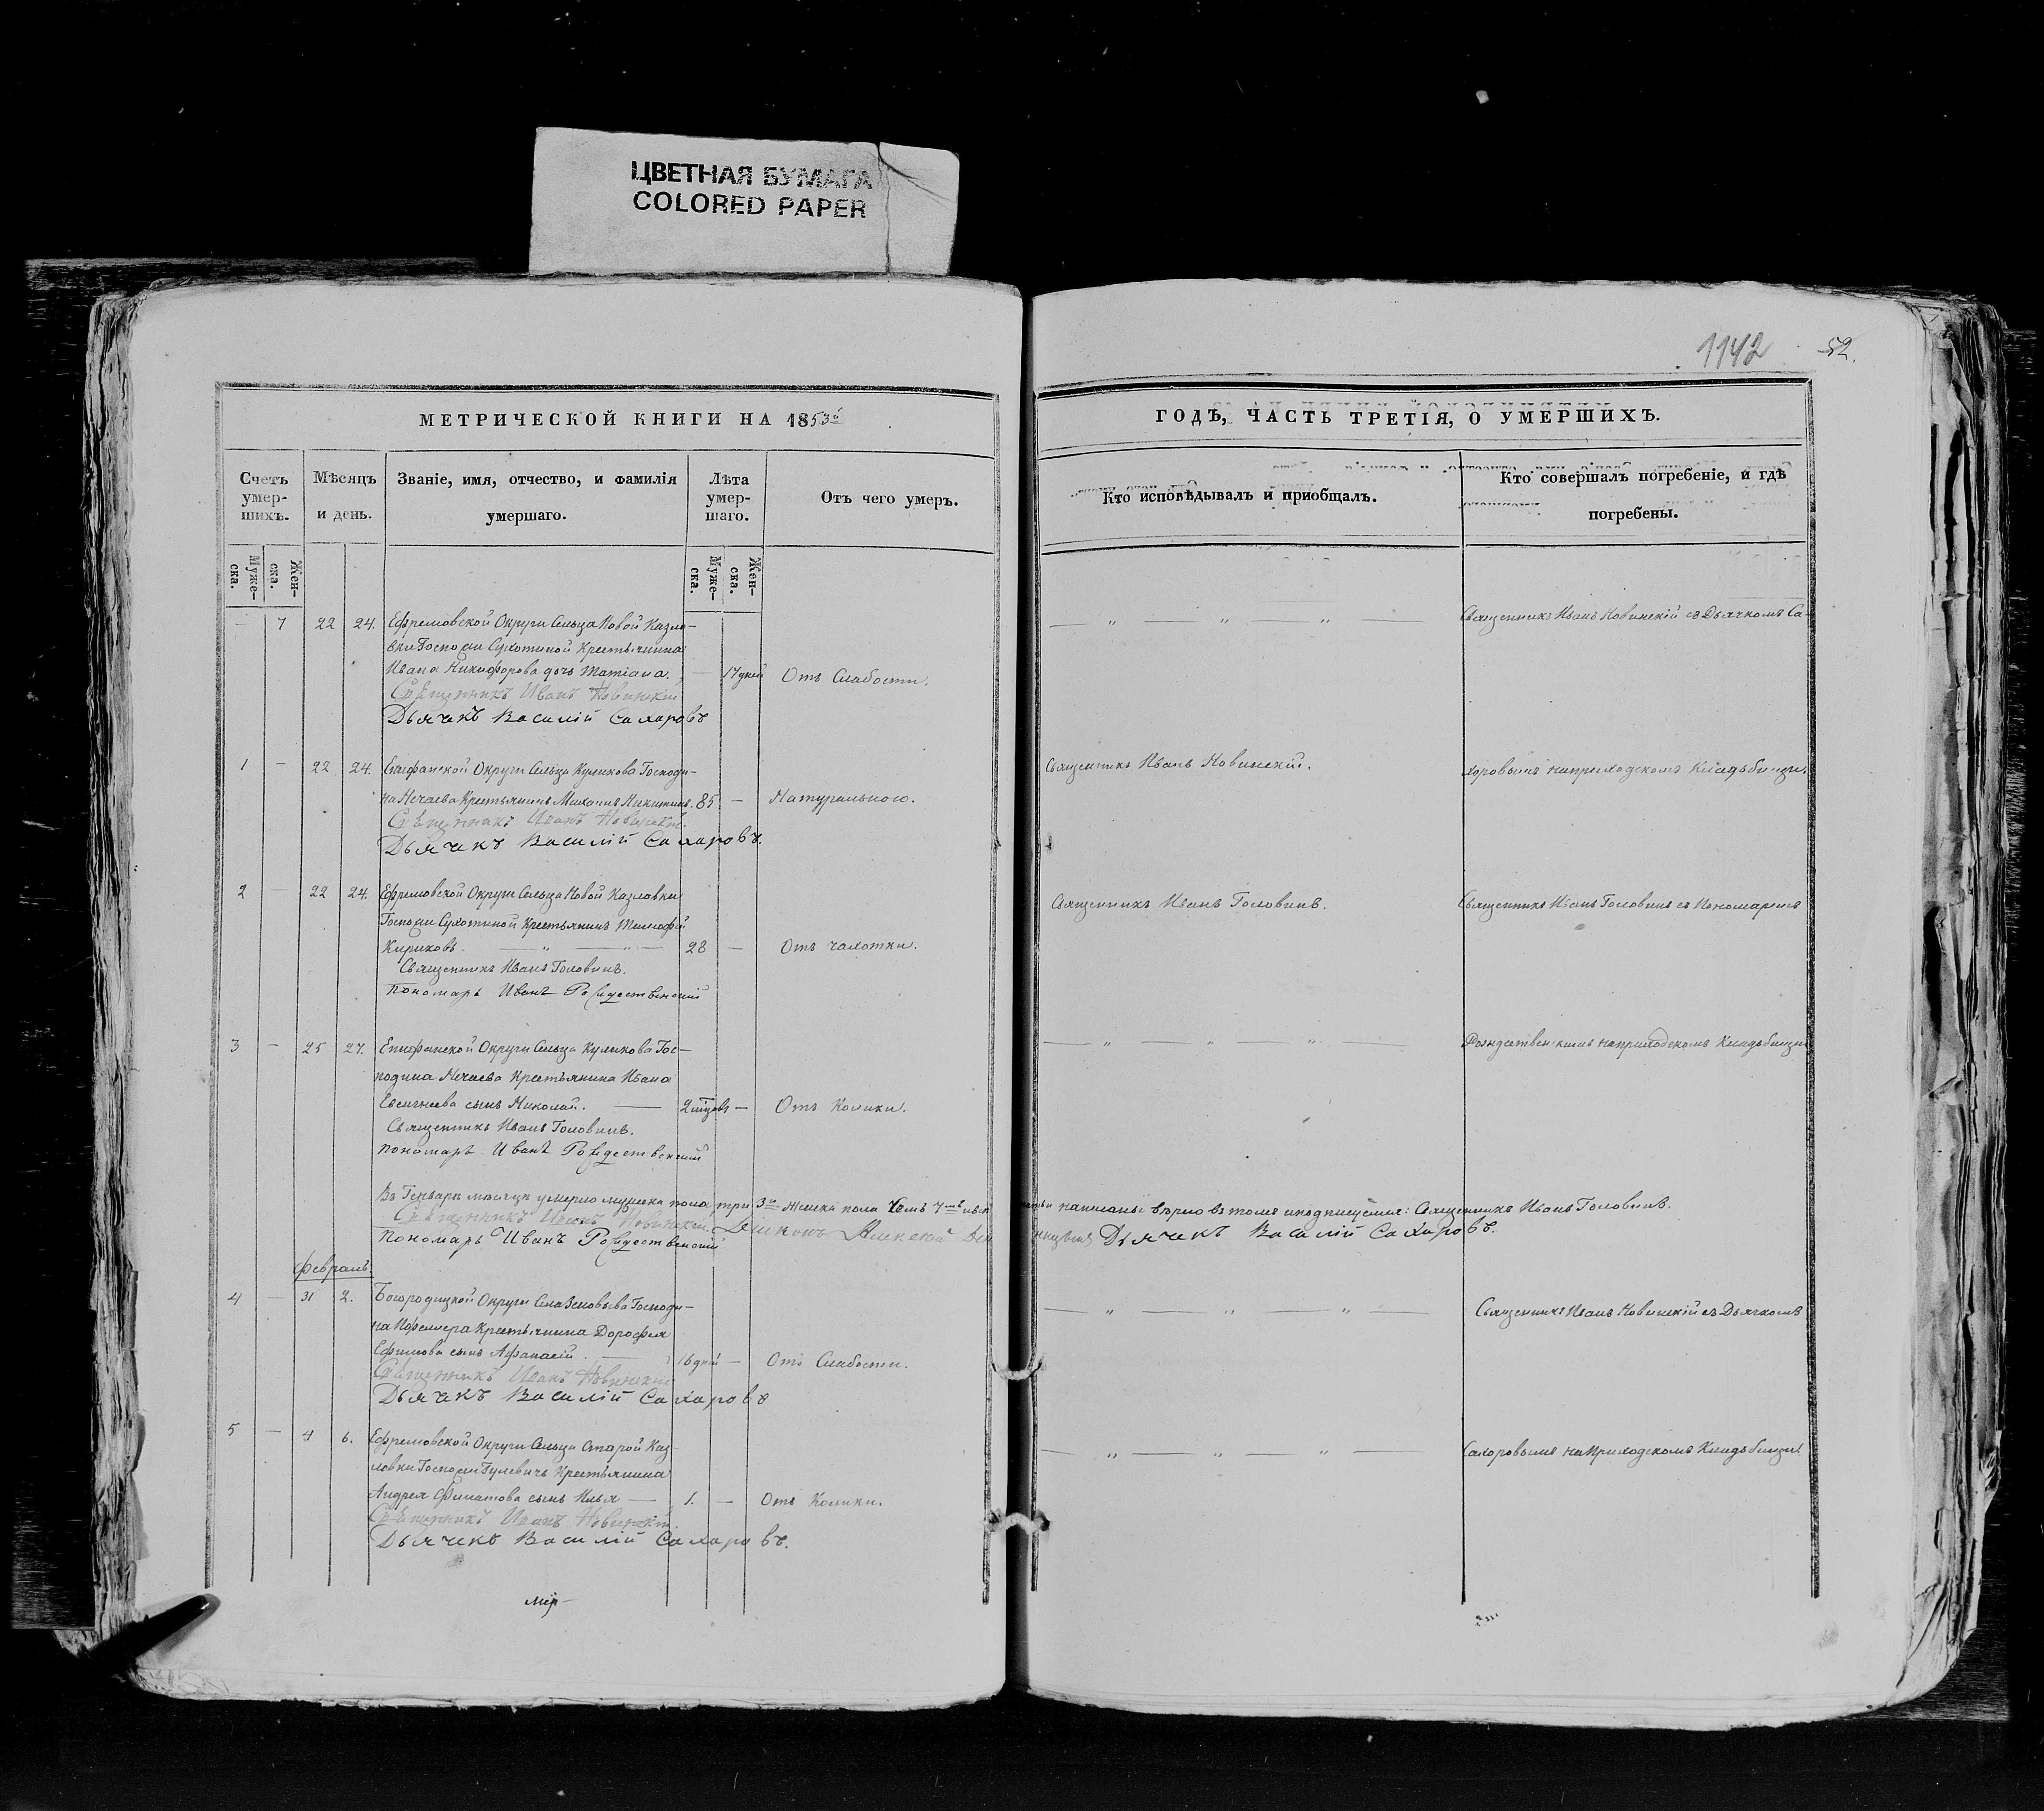 ЦВЕТНАЯ БУМАГА
COLORED PAPER
1142 52.
МЕТРИЧЕСКОЙ КНИГИ НА 1853й
Счетъ умер-шихъ.
Мѣсяцъ и день.
Званіе, имя, отчество, и фамилія умершаго.
Лѣта умер-шаго.
Отъ чего умеръ.
Муже-ска. Жен-ска.
Муже-ска. Жен-ска.
— 7 22 24. Ефремовской Округи Сельца Новой Казло-
вки Госпожи Сухотиной Крестьянина
Ивана Никифорова дочь Татіана. — 17 дней Отъ Слабости.
Священникъ Иванъ Новинскій
Дьячекъ Василій Сахаровъ
1 — 22 24. Епифанской Округи Сельца Куликова Господи-
на Нечаева Крестьянинъ Михаилъ Никитинъ. 85 — Натурально.
Священникъ Иванъ Новинскій.
Дьячекъ Василій Сахаровъ.
2 — 22 24. Ефремовской Округи Сельца Новой Казловки
Госпожи Сухотиной Крестьянинъ Тимофей
Кириковъ. — „ — „ — 28 — Отъ чахотки.
Священникъ Иванъ Головинъ.
Пономарь Иванъ Рождественскій
3 — 25 27. Епифанской Округи Сельца Куликова Гос-
подина Нечаева Крестьянина Ивана
Евсигнеева сынъ Николай. — 2 — Отъ Колики.
Священникъ Иванъ Головинъ.
Пономарь Иванъ Рождественскій
Въ Генварѣ мѣсяцѣ умерло мужска пола три 3 женска пола
Священникъ Иванъ Новинскій. Діаконъ Алексей
Пономарь Иванъ Рождественскій
Февраль.
4 — 31 2. Богородицкой Округи Села Господи-
на Крестьянина Дорофея
Ефимова сынъ Афанасій. — 16 дней — Отъ Слабости.
Священникъ Иванъ Новинскій
Дьячекъ Василій Сахаровъ
5 — 4 6. Ефремовской Округи Сельца Старой Каз-
ловки Госпожи Гулевичъ Крестьянина
Андрея Филатова сынъ Илья — 1. — Отъ Колики.
Священникъ Иванъ Новинскій.
Дьячекъ Василій Сахаровъ.
ГОДЪ, ЧАСТЬ ТРЕТІЯ, О УМЕРШИХЪ.
Кто исповѣдывалъ и пріобщалъ.
Кто совершалъ погребеніе, и гдѣ погребены.
— „ — „ — „ — Священникъ Иванъ Новинскій съ Дьячкомъ Са-
Священникъ Иванъ Новинскій. харовымъ на приходскомъ Кладбищи.
Священникъ Иванъ Головинъ. Священникъ Иванъ Головинъ съ Пономаремъ
— „ — „ — „ — Рождественскимъ на приходскомъ Кладбищи
написаны вѣрно въ томъ и подписуемся: Священникъ Иванъ Головинъ.
Дьячекъ Василій Сахаровъ.
— „ — „ — „ — Священникъ Иванъ Новинскій съ Дьячкомъ
— „ — „ — „ — Сахаровымъ на Приходскомъ Кладбищи